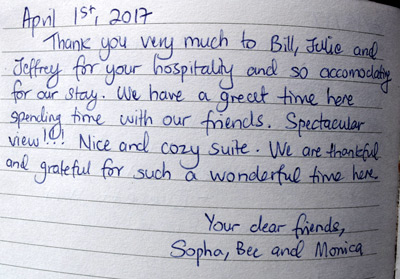 April 1st, 2017
Thank you very much to Bill, Julie and
Jeffrey for your hospitality and so accomodating
for our stay. We have a great time here
spending time with our friends. Spectacular
view!!!! Nice and cozy suite. We are thankful
and grateful for such a wonderful time here.
Your dear friends,
Sopha, Bee and Monica